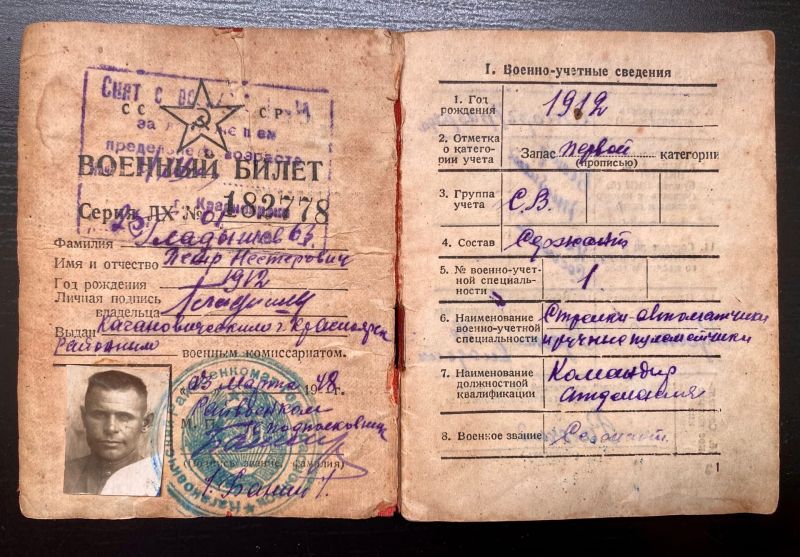 СССР
Снят с
за
пределе возраста
ВОЕННЫЙ БИЛЕТ
г. Красноярск
Серия ЛХ № 182778
Фамилия Гладышев
Имя и отчество Петр Нестерович
Год рождения 1912
Личная подпись
владельца
Выдан Кагановическим г. Красноярск
Районным военным комиссариатом.
23 марта 1948 г.
Райвоенком
М. П. Подполковник
(Подпись, звание, фамилия)
I. Военно-учетные сведения
1. Год рождения 1912
2. Отметка о категории учета Запас первой категории
(прописью)
3. Группа учета С.В.
4. Состав Сержант
5. № военно-учетной специальности 1
6. Наименование военно-учетной специальности Стрелки-автоматчики и ручные пулеметчики
7. Наименование должностной квалификации Командир отделения
8. Военное звание Сержант.
1